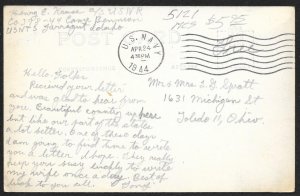 Irving E. Krause a/s U.S.N.R.
Co. 279-44 Camp Peruman
USNTS Farragut Idaho
5/21
POST
U.S. NAVY
APR 24
4 30 PM
1944
Free
Hello Folks
Received your letter
and was glad to hear from
you. Beautiful country up here
but like our part of the states
a lot better. One of these days
am going to find time to write
you a letter I hope. They really
keep you busy finally to write
my wife once a day. Best of
luck to you all.
Mr & Mrs L D Spratt
1631 Michigan St
Toledo 11, Ohio.